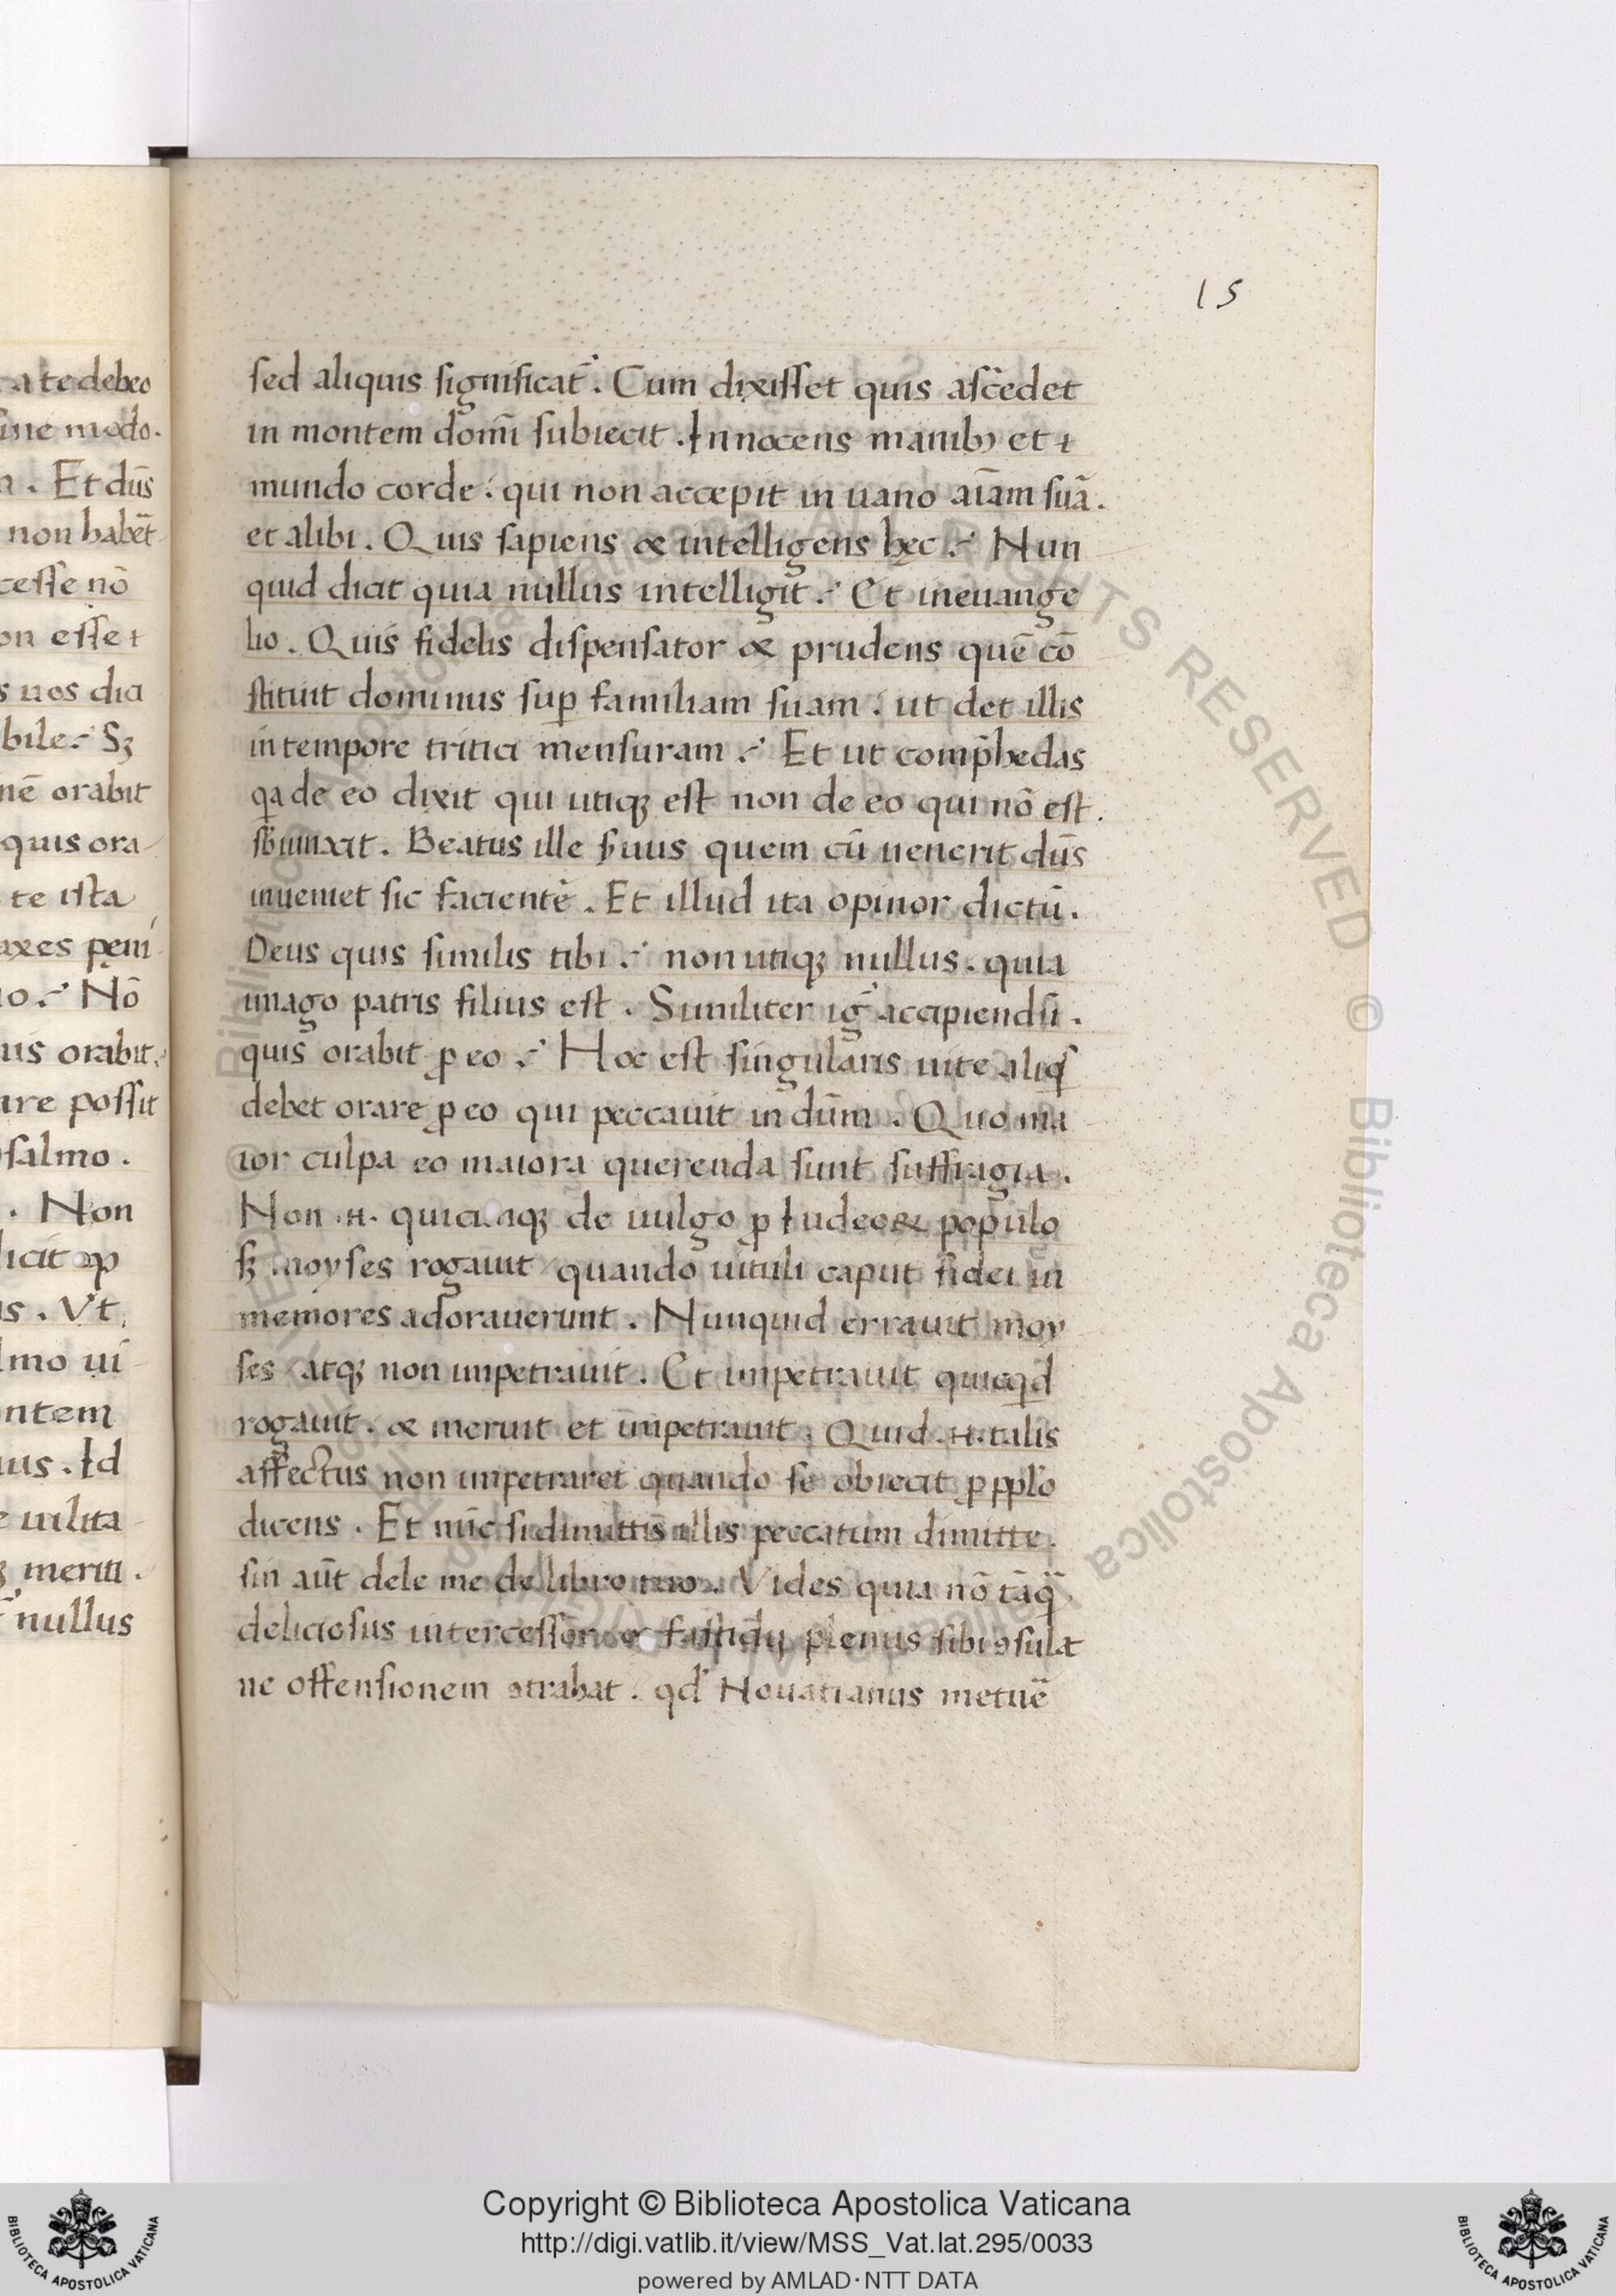 15
a te debeo
sine modo.
. Et dn̄s
non habēt
cesse nō
on esse ɫ
s uos dici
bile? Sꝫ
nē orabit
quis ora
te ista
axes peni
io? Nō
uis orabit
are possit
psalmo.
. Non
dicit qp
us. Vt
lmo ui
ontem
uus. Id
e uilita
ꝫ meriti.
nullus
sed aliquis significat᷑. Cum dixisset quis ascēdet
in montem domī subiecit. Innocens manibꝫ et ɫ
mundo corde. qui non accepit in uano aīam suā.
et alibi. Quis sapiens & intelligens hęc? Nun
quid dicit quia nullus intelligit? Et in euange
lio. Quis fidelis dispensator & prudens quē cō
stituit dominus suꝑ familiam suam. ut det illis
in tempore tritici mensuram? Et ut comp̄hēdas
qa de eo dixit qui utiqꝫ est non de eo qui nō est.
sb̄iunxit. Beatus ille s̄uus quem cū uenerit dn̄s
inueniet sic facientē. Et illud ita opinor dictū.
Deus quis similis tibi? non utiqꝫ nullus. quia
imago patris filius est. Similiter iḡ accipiendū.
quis orabit ꝓ eo? Hoc est singularis uite aliqs
debet orare ꝓ eo qui peccauit in dn̄m. Quo ma
ior culpa eo maiora querenda sunt suffragia.
Non .n. quicunqꝫ de uulgo ꝓ Iudeoꝝ populo
sꝫ moyses rogauit quando uituli caput fidei in
memores adorauerunt. Nunquid errauit moy
ses atqꝫ non impetrauit. Et impetrauit quicqd
rogauit. & meruit et impetrauit. Quid .n. talis
affectus non impetraret quando se obiecit ꝓ pplō
dicens. Et nūc si dimittis illis peccatum dimitte.
sin aūt dele me de libro tuo. Vides quia nō tāq̄
deliciosus intercessor & fastidij plenus sibi ꝯsulat
ne offensionem ꝯtrahat. qd Nouatianus metuē
Copyright © Biblioteca Apostolica Vaticana
http://digi.vatlib.it/view/MSS_Vat.lat.295/0033
powered by AMLAD·NTT DATA
BIBLIOTECA APOSTOLICA VATICANA
BIBLIOTECA APOSTOLICA VATICANA